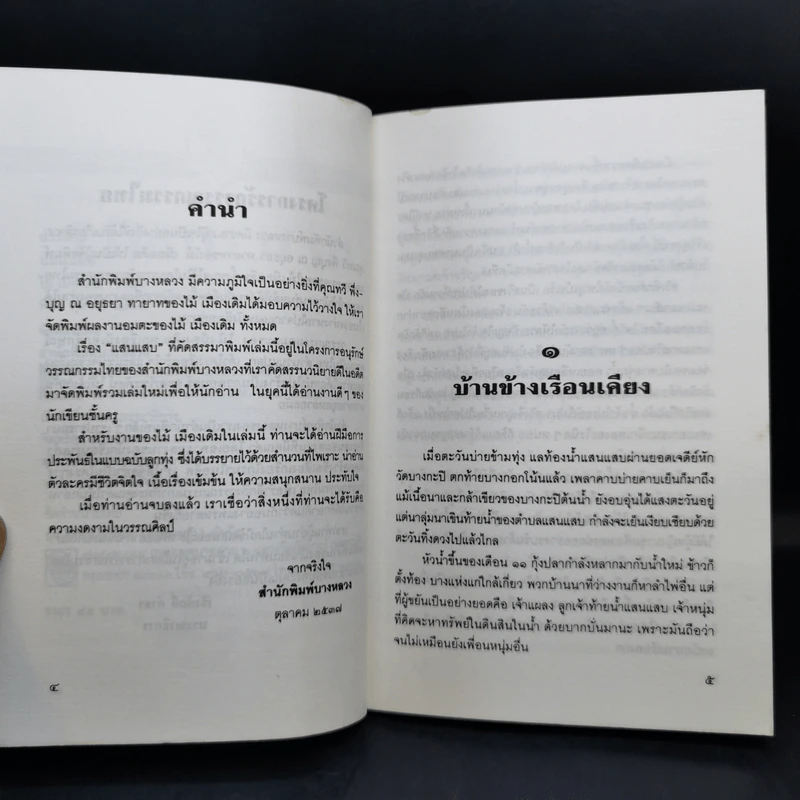 คำนำ
สำนักพิมพ์บางหลวง มีความภูมิใจเป็นอย่างยิ่งที่คุณทวี พึ่ง-
บุญ ณ อยุธยา ทายาทของไม้ เมืองเดิมได้มอบความไว้วางใจ ให้เรา
จัดพิมพ์ผลงานอมตะของไม้ เมืองเดิม ทั้งหมด
เรื่อง "แสนแสบ" ที่คัดสรรมาพิมพ์เล่มนี้อยู่ในโครงการอนุรักษ์
วรรณกรรมไทยของสำนักพิมพ์บางหลวงที่เราคัดสรรนวนิยายดีในอดีต
มาจัดพิมพ์รวมเล่มใหม่เพื่อให้นักอ่าน ในยุคนี้ได้อ่านงานดีๆ ของ
นักเขียนชั้นครู
สำหรับงานของไม้ เมืองเดิมในเล่มนี้ ท่านจะได้อ่านฝีมือการ
ประพันธ์ในแบบฉบับลูกทุ่ง ซึ่งได้บรรยายไว้ด้วยสำนวนที่ไพเราะ น่าอ่าน
ตัวละครมีชีวิตจิตใจ เนื้อเรื่องเข้มข้น ให้ความสนุกสนาน ประทับใจ
เมื่อท่านอ่านจบลงแล้ว เราเชื่อว่าสิ่งหนึ่งที่ท่านจะได้รับคือ
ความงดงามในวรรณศิลป์
จากจริงใจ
สำนักพิมพ์บางหลวง
ตุลาคม ๒๕๓๗
๔
๑
บ้านข้างเรือนเคียง
เมื่อตะวันบ่ายข้ามทุ่ง แลท้องน้ำแสนแสบผ่านยอดเจดีย์หัก
วัดบางกะปิ ตกท้ายบางกอกโน้นแล้ว เพลาคาบบ่ายคาบเย็นก็มาถึง
แม้เนื้อนาและกล้าเขียวของบางกะปิต้นน้ำ ยังอบอุ่นได้แสงตะวันอยู่
แต่นาลุ่มนาเขินท้ายน้ำของตำบลแสนแสบ กำลังจะเย็นเงียบเชียบด้วย
ตะวันทิ้งดวงไปแล้วไกล
หัวน้ำขึ้นของเดือน ๑๑ กุ้งปลากำลังหลากมากับน้ำใหม่ ข้าวก็
ตั้งท้อง บางแห่งแก่ใกล้เกี่ยว พวกบ้านนาที่ว่างงานก็หาลำไพ่อื่น แต่
ที่ผู้ขยันเป็นอย่างยอดคือ เจ้าแผลง ลูกเจ้าท้ายน้ำแสนแสบ เจ้าหนุ่ม
ที่คิดจะหาทรัพย์ในดินสินในน้ำ ด้วยบากบั่นมานะ เพราะมันถือว่า
จนไม่เหมือนยังเพื่อนหนุ่มอื่น
๕